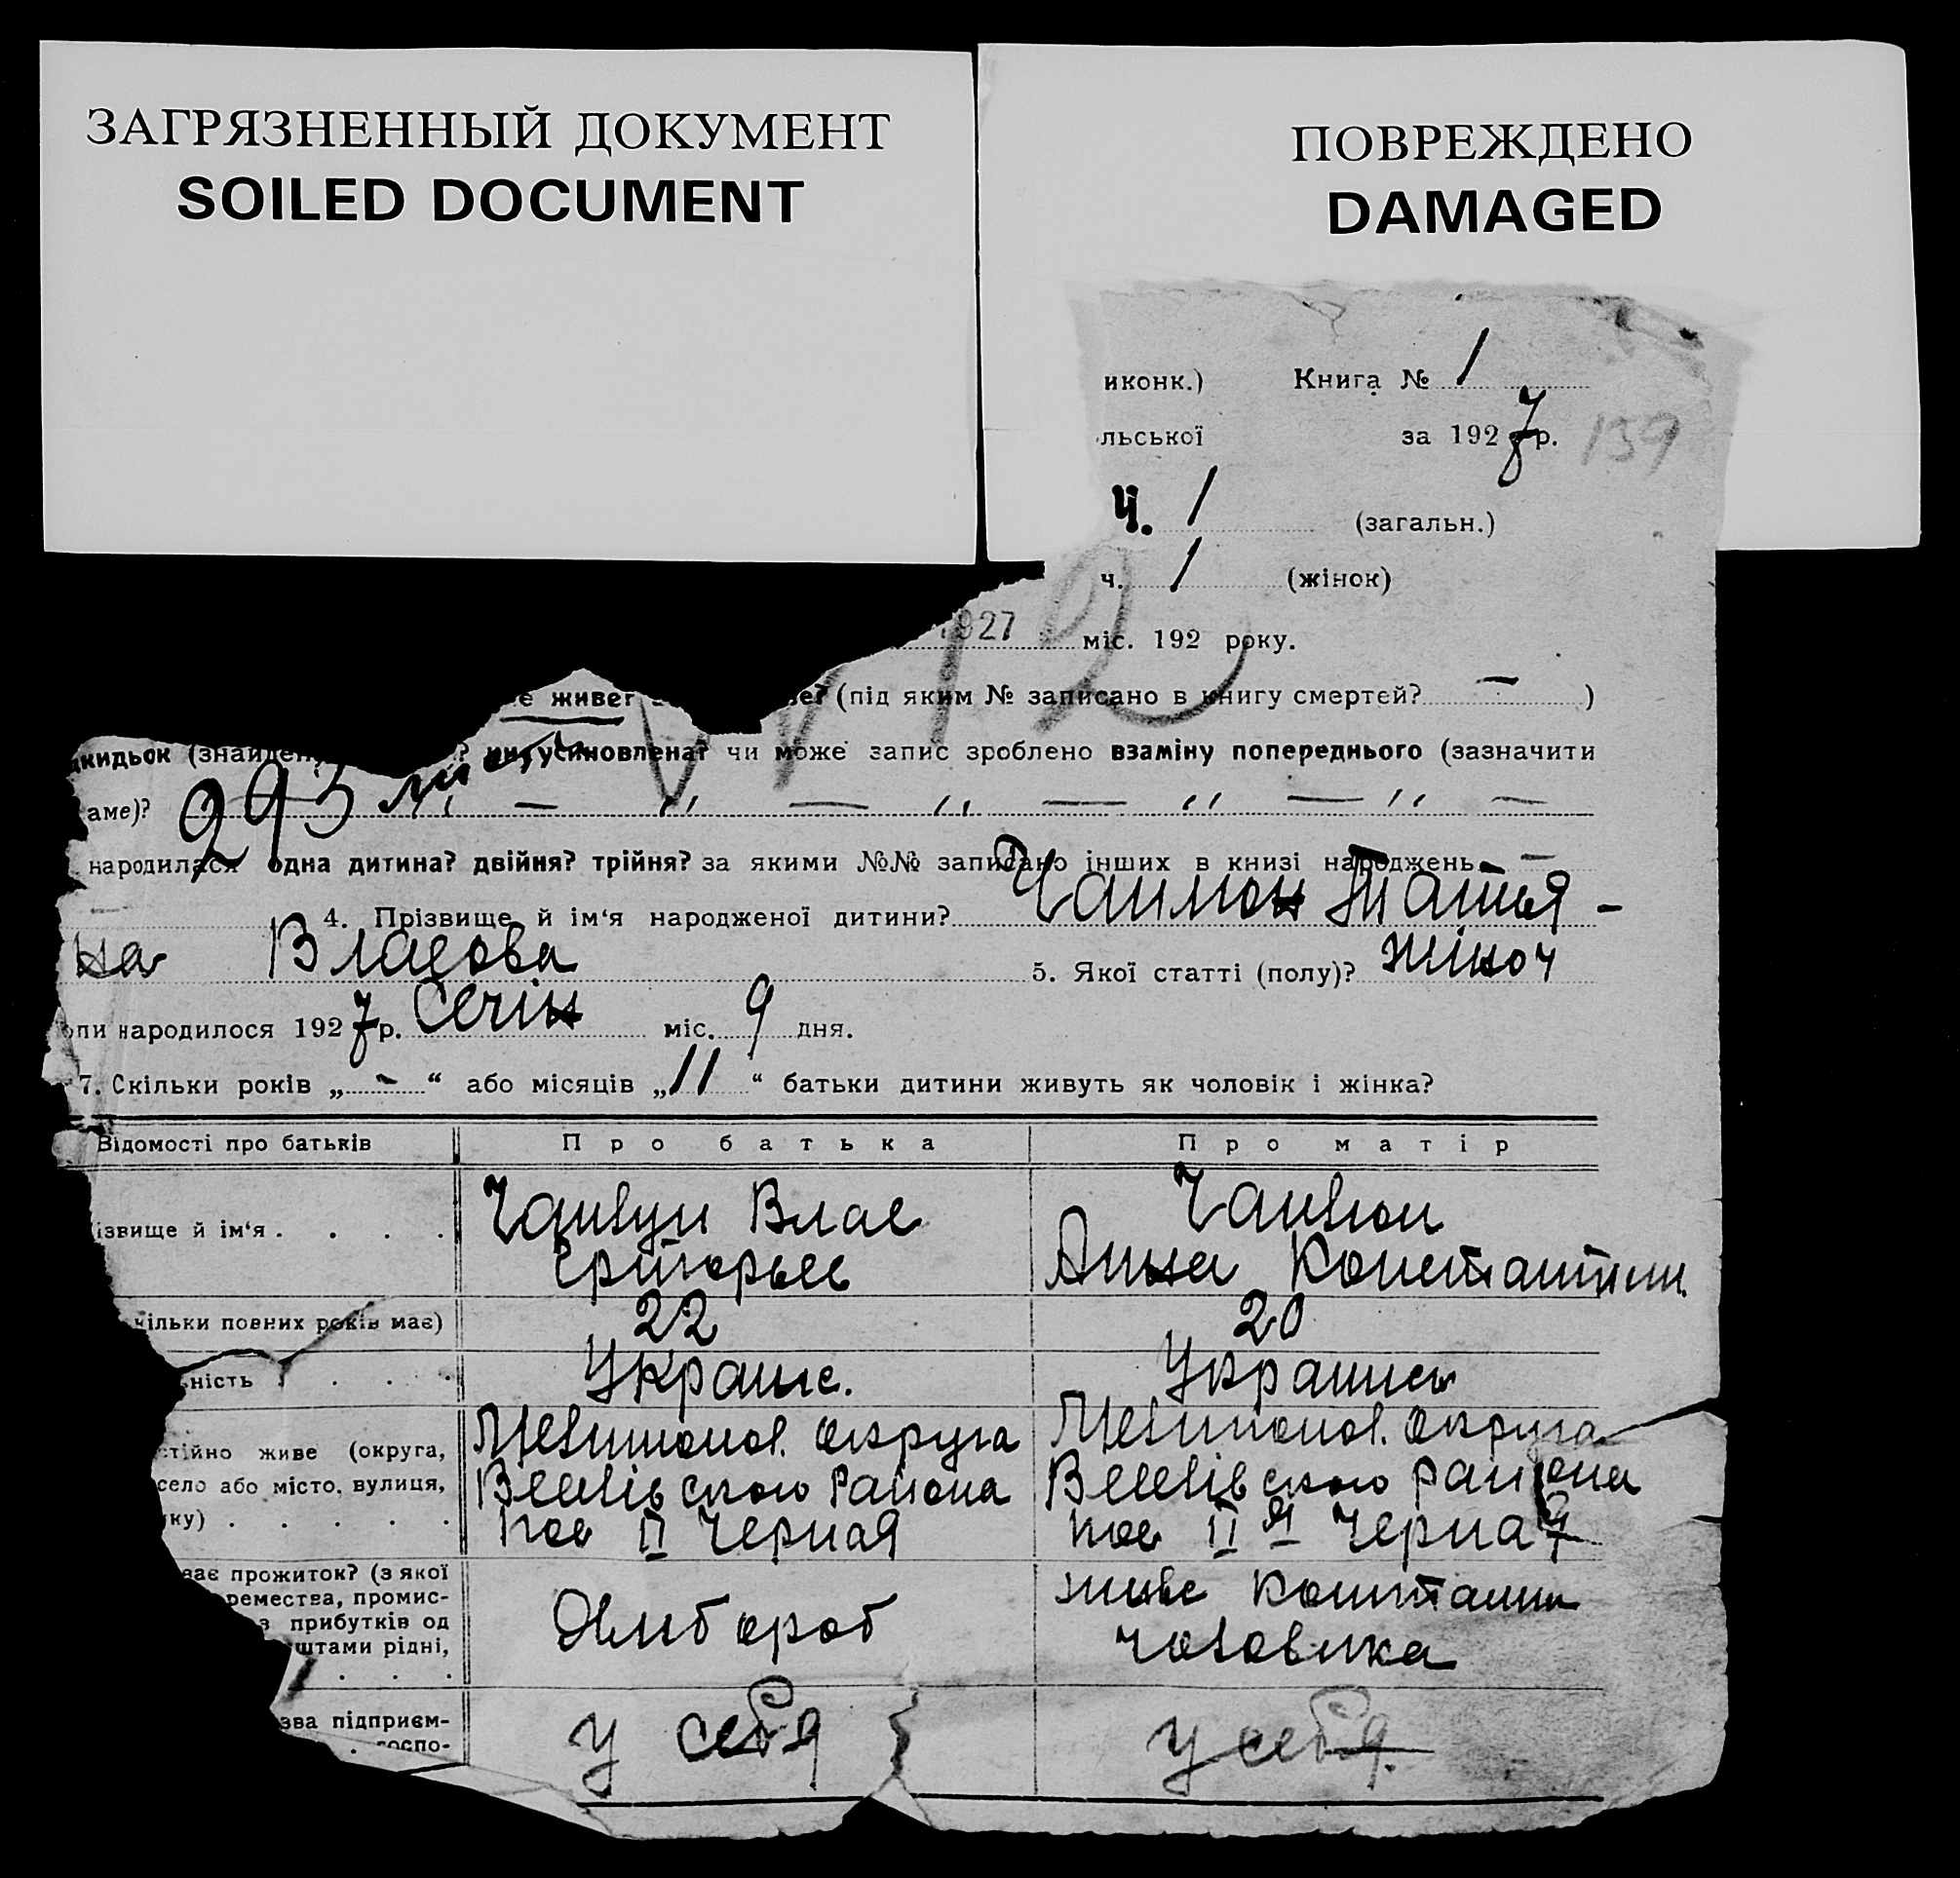 ЗАГРЯЗНЕННЫЙ ДОКУМЕНТ
SOILED DOCUMENT
ПОВРЕЖДЕНО
DAMAGED
иконк.) Книга № 1
льської за 1927 р. 139
Ч. 1 (загальн.)
ч. 1 (жінок)
1927 міс. 192 року.
е живе (під яким № записано в книгу смертей? — )
кидьок (знайден ? чи усиновлена? чи може запис зроблено взаміну попереднього (зазначити
аме)? " — " — " — " — " —
народилася одна дитина? двійня? трійня? за якими №№ записано інших в книзі народжень —
— 4. Прізвище й ім‘я народженої дитини? Татья-
на Власова 5. Якої статті (полу)? жіноч
оли народилося 1927 р. Січін міс. 9 дня.
7. Скільки років „ - “ або місяців „ 11 “ батьки дитини живуть як чоловік і жінка?
Відомості про батьків Про батька Про матір
ізвище й ім‘я . . . . Влас
Григорьев Анна Константин.
кільки повних років має) 22 20
ьність . . . . Украінс. Украинсь
стійно живе (округа, Мелитопол. округа Мелитопол. округа
село або місто, вулиця, района района
ку) . . . . . пос II Черная пос II я Черная
ває прожиток? (з якої
ремества, промис-
з прибутків од Хлибороб живе коштами
штами рідні, чоловика
. . .
зва підприєм- у себя у себя.
госпо-